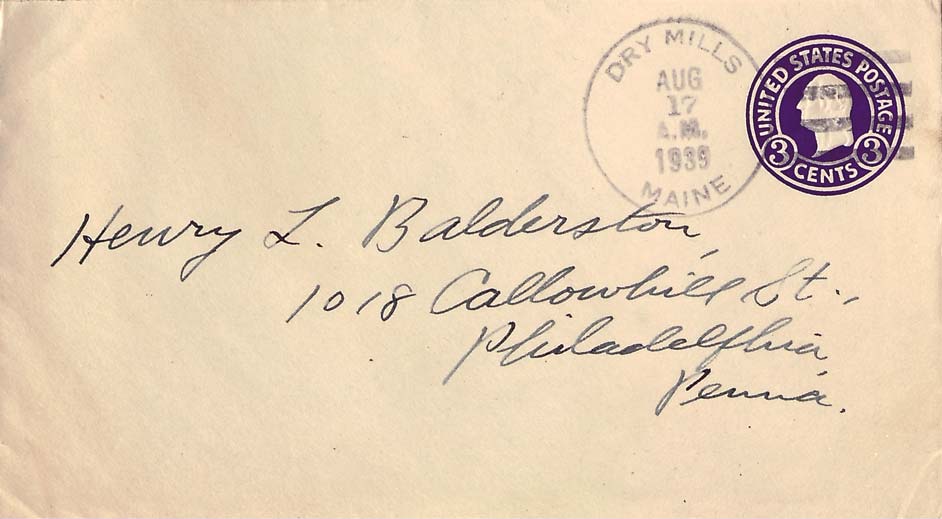 DRY MILLS
AUG
17
A.M.
1939
MAINE
UNITED STATES POSTAGE
3 CENTS 3
Henry L. Balderston,
1018 Callowhill St.,
Philadelphia,
Penna.